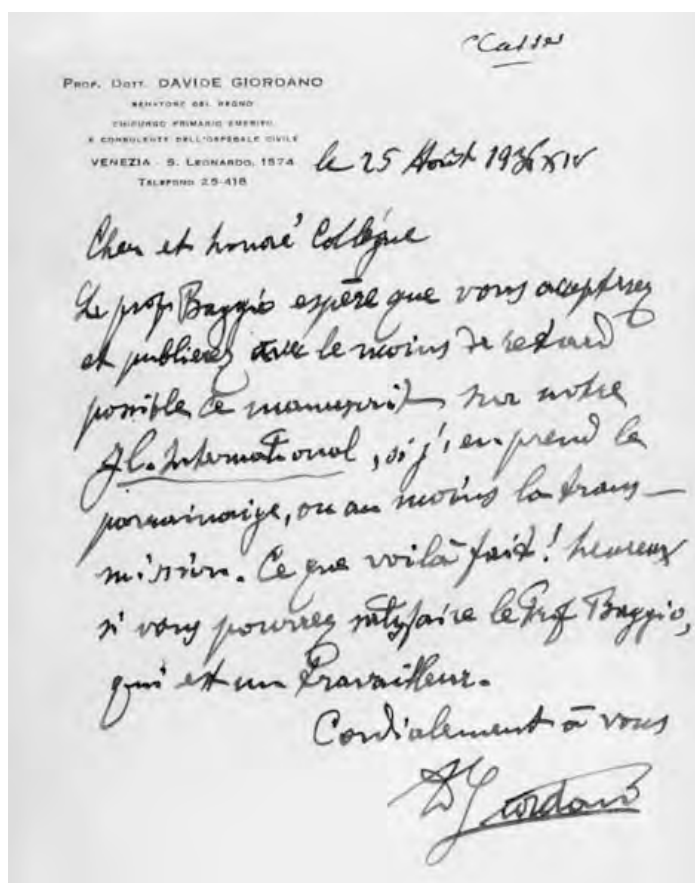 Classer
PROF. DOTT. DAVIDE GIORDANO
SENATORE DEL REGNO
CHIRURGO PRIMARIO EMERITO
E CONSULENTE DELL'OSPEDALE CIVILE
VENEZIA - S. LEONARDO, 1574
TELEFONO 25-418
le 25 Août 1936 XIV
Cher et honoré Collègue
Le prof. Baggio espère que vous accepterez
et publierez avec le moins de retard
possible ce manuscrit sur notre
Jl. International, si j'en prend le
parrainaige, ou au moins la trans-
mission. Ce que voilà fait! heureux
si vous pourrez satisfaire le Prof Baggio,
qui est un travailleur.
Cordialement à vous
D Giordano